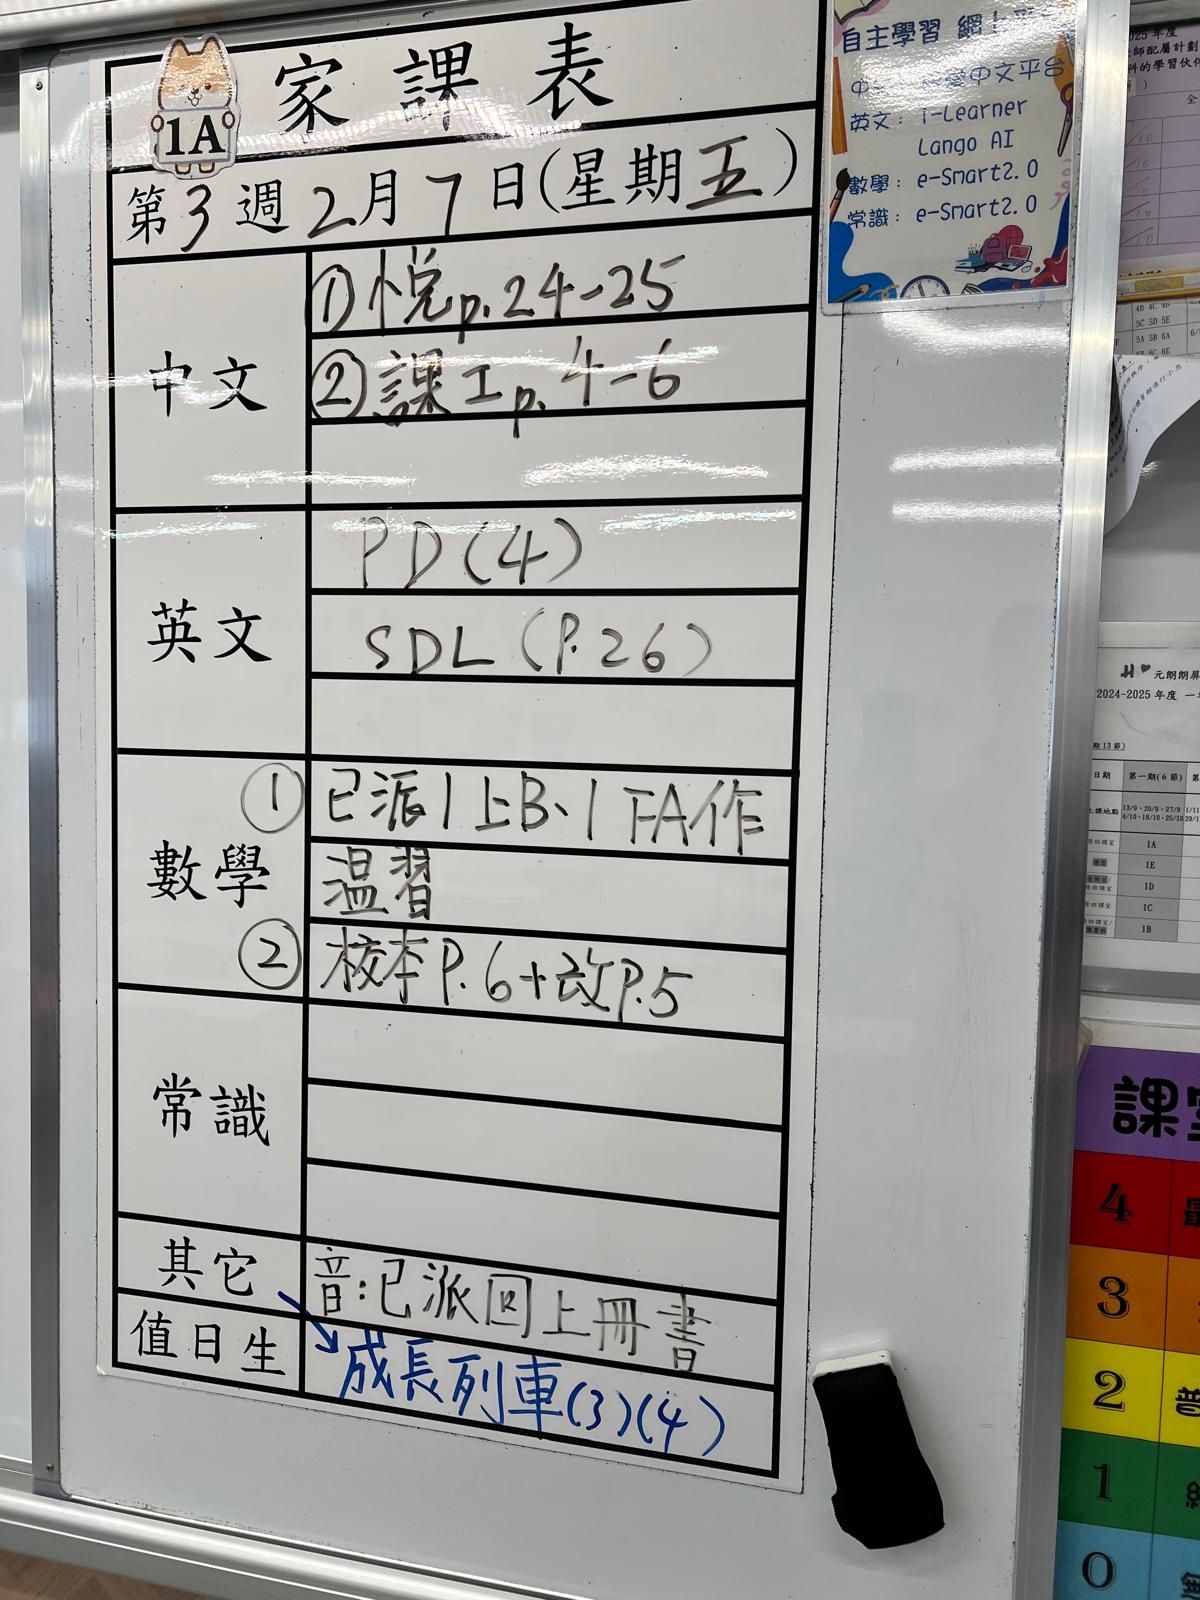 家課表
1A
第3週2月7日(星期五)
中文
①悅p.24-25
②課工p.4-6
英文
PD(4)
SDL(P.26)
數學
①已派1上B、1FA作
溫習
②校本P.6+改P.5
常識
其它
音:已派回上冊書
值日生
成長列車(3)(4)
自主學習 網上
中文平台
英文: i-Learner
Lango AI
數學: e-Smart2.0
常識: e-Smart2.0
年度
師配屬計劃
科的學習伙伴
4B 4C 4D
5C 5D 5E
5A 5B 6A
元朗朗屏
2024-2025 年度 一
期13節)
日期
第一期(6節)
第
13/9、20/9、27/9
4/10、18/10、25/10
1A
1E
1D
1C
1B
課室
4
3
2
1
0